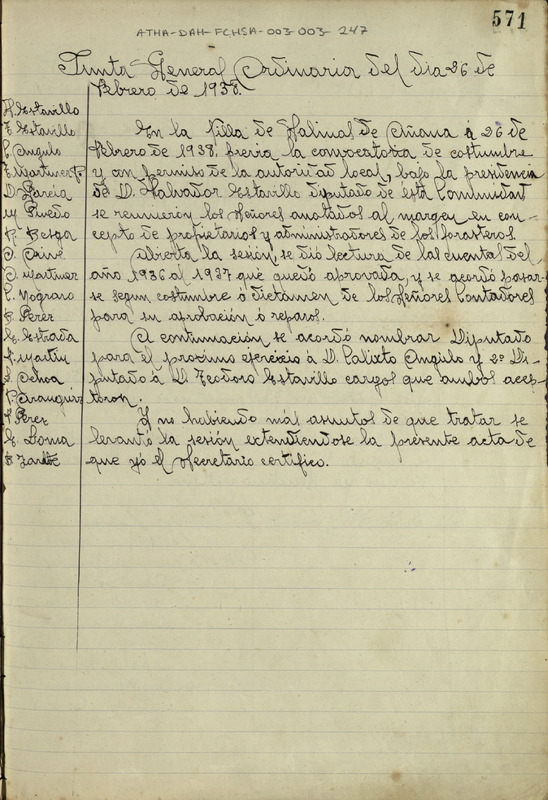 571
ATHA-DAH-FCHSA-003-003-247
Junta General Ordinaria del dia 26 de
Febrero de 1938.
S. Estavillo
T. Estavillo
C. Angulo
E. Martinez P.
D. Garcia
M. Pinedo
R. Besga
O. Ortiz
C. Martinez
C. Nograro
F. Perez
E. Estrada
F. Martin
S. Ochoa
P. Aranguiz
F. Perez
E. Loma
B. Zarate
En la Villa de Salinas de Añana á 26 de
Febrero de 1938, previa la convocatoria de costumbre
y con permiso de la autoridad local, bajo la presidencia
de D. Salvador Estavillo diputado de ésta Comunidad
se reunieron los Señores anotados al margen en con-
cepto de propietarios y administradores de los forasteros.
Abierta la sesión, se dió lectura de las cuentas del
año 1936 al 1937 que quedó aprovada, y se acordó pasar-
se segun costumbre á dictámen de los Señores Contadores
para su aprobación ó reparos.
A continuación se acordó nombrar Diputado
para el proximo ejercicio á D. Calixto Angulo y 2º Di-
putado á D. Teodoro Estavillo cargos que ambos acep-
taron.
Y no habiendo más asuntos de que tratar se
levantó la sesión extendiendose la presente acta de
que yó el Secretario certifico.